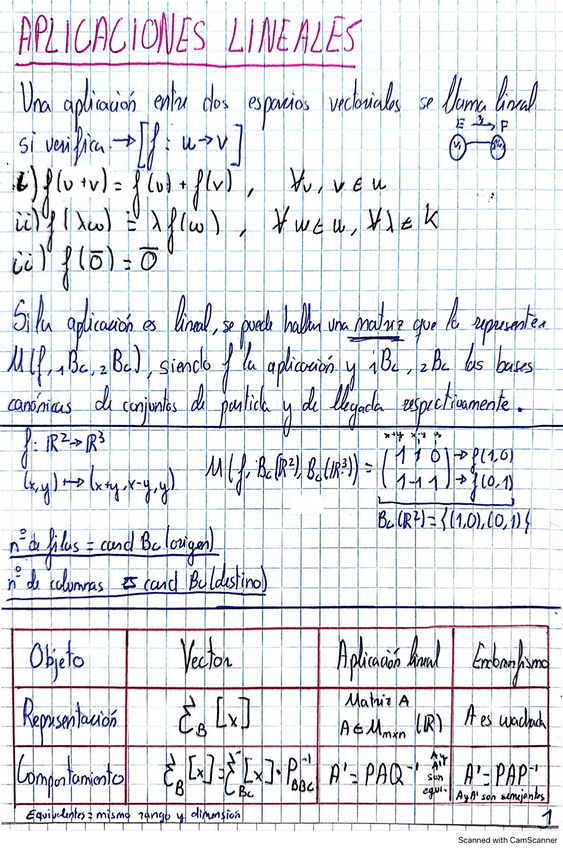 APLICACIONES LINEALES
Una aplicación entre dos espacios vectoriales se llama lineal
si verifica → [f: u → v]
E f→ F
i) f(u+v) = f(u) + f(v) , ∀u, v ∈ u
ii) f(λω) = λf(ω) , ∀ w ∈ u, ∀λ ∈ K
iii) f(0̄) = 0̄
Si la aplicación es lineal, se puede hallar una matriz que la represente
M(f, ₁Bc, ₂Bc), siendo f la aplicación y ₁Bc, ₂Bc las bases
canónicas de conjuntos de partida y de llegada respectivamente.
f: ℝ² → ℝ³
(x,y) ↦ (x+y, x-y, y)
x+y x-y y
M(f, Bc(ℝ²), Bc(ℝ³)) = (1 1 0) → f(1,0)
(1 -1 1) → f(0,1)
Bc(ℝ²) = {(1,0), (0,1)}
nº de filas = card Bc (origen)
nº de columnas = card Bc (destino)
Objeto Vector Aplicación lineal Endomorfismo
Representación ξB [x] Matriz A A ∈ Mmxn (ℝ) A es cuadrada
Comportamiento ξB [x] = ξBc [x] · P⁻¹BBC A' = PAQ⁻¹ A y A' son equi. A' = PAP⁻¹ A y A' son semejantes
Equivalentes = mismo rango y dimension
1
Scanned with CamScanner